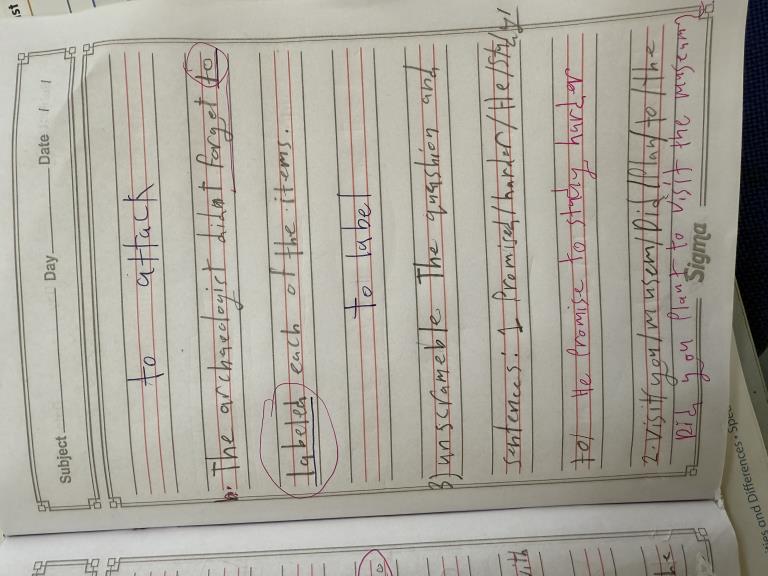 Subject Day Date
to attack
6. The archaeologist didnt forget to
labeled each of the items.
to label
B) unscrameble The quashion and
sentences: 1 Promised/harder/He/study/
to/ He promise to study harder
2. Visit/you/musem/Did/Plan/to/the
Did you plant to visit the museum?
Sigma
ies and Differences • Spec